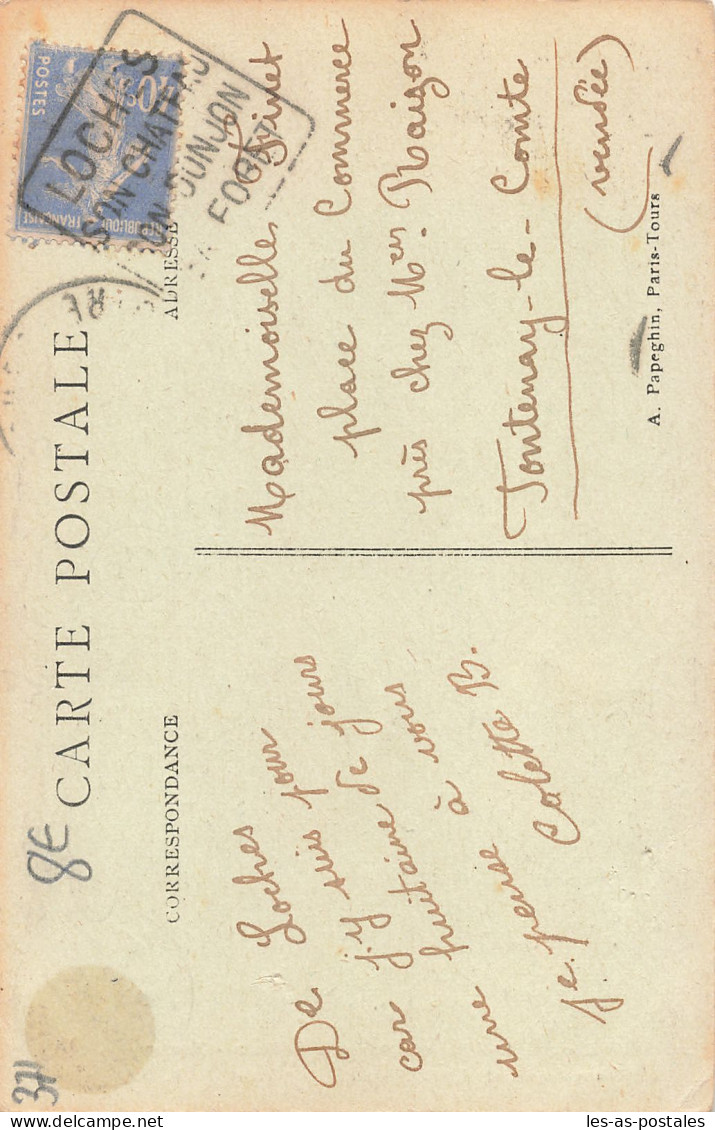 CARTE POSTALE
CORRESPONDANCE
De Loches
car j'y suis pour
une huitaine de jours
je pense à vous
Colette B.
ADRESSE
Mademoiselle
place du Commerce
près chez Mers. Raison
Fontenay-le-Comte
(vendée)
A. Papeghin, Paris-Tours
POSTES
REPUBLIQUE FRANÇAISE
LOCHES
SON CHATEAU
SON DONJON
SA FORET
8E
37
les-as-postales